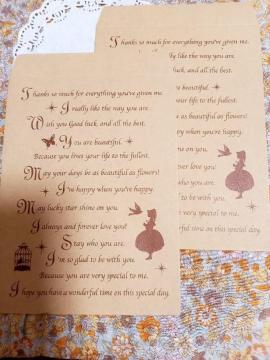 Thanks so much for everything you've given me.
I really like the way you are.
Wish you Good luck, and all the best.
You are beautiful.
Because you lives your life to the fullest.
May your days be as beautiful as flowers!
I'm happy when you're happy.
May lucky star shine on you.
I always and forever love you!
Stay who you are.
I'm so glad to be with you.
Because you are very special to me.
I hope you have a wonderful time on this special day.
Thanks so much for everything you've given me.
y like the way you are.
luck, and all the best.
are beautiful.
your life to the fullest.
be as beautiful as flowers!
when you're happy.
ine on you.
rever love you!
who you are.
to be with you.
very special to me.
rful time on this special day.